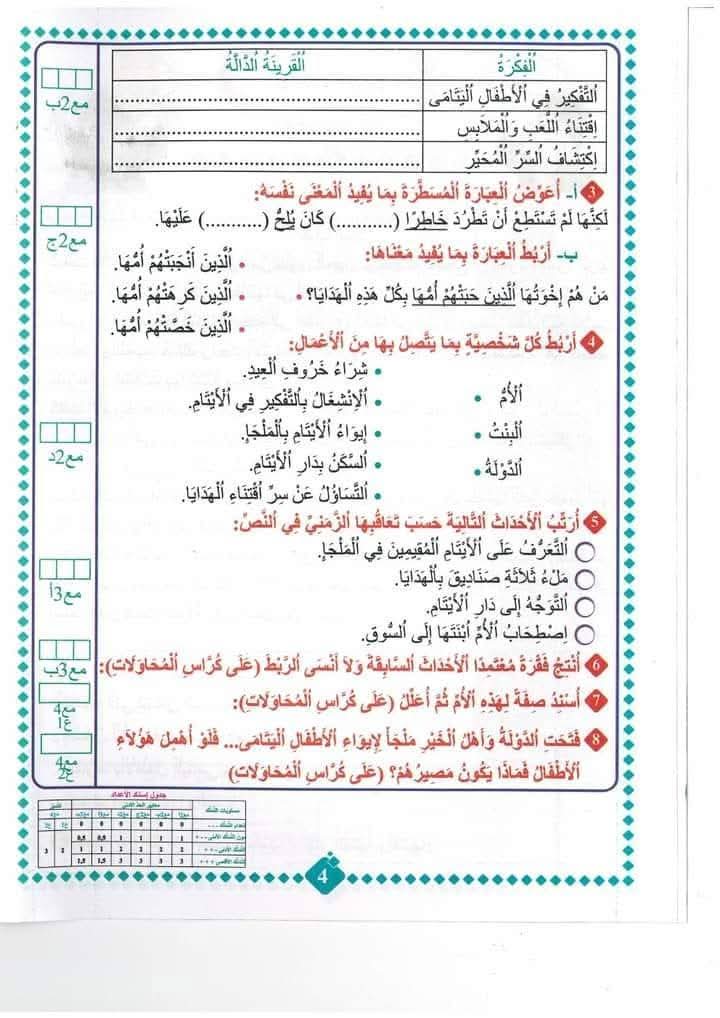 اَلْفِكْرَةُ | اَلْقَرِينَةُ الدَّالَّةُ
اَلتَّفْكِيرُ فِي الْأَطْفَالِ الْيَتَامَى | ..........................................
اِقْتِنَاءُ اللُّعَبِ وَالْمَلَابِسِ | ..........................................
اِكْتِشَافُ السِّرِّ الْمُحَيِّرِ | ..........................................
مع2ب
3 أ- أُعَوِّضُ الْعِبَارَةَ الْمُسَطَّرَةَ بِمَا يُفِيدُ الْمَعْنَى نَفْسَهُ:
لَكِنَّهَا لَمْ تَسْتَطِعْ أَنْ تَطْرُدَ خَاطِرًا (..........) كَانَ يُلِحُّ (..........) عَلَيْهَا.
مع2ج
ب- أَرْبُطُ الْعِبَارَةَ بِمَا يُفِيدُ مَعْنَاهَا:
• اَلَّذِينَ أَنْجَبَتْهُمْ أُمُّهَا.
مَنْ هُمْ إِخْوَتُهَا الَّذِينَ حَبَتْهُمْ أُمُّهَا بِكُلِّ هَذِهِ الْهَدَايَا؟ • • اَلَّذِينَ كَرِهَتْهُمْ أُمُّهَا.
• اَلَّذِينَ خَصَّتْهُمْ أُمُّهَا.
4 أَرْبُطُ كُلَّ شَخْصِيَّةٍ بِمَا يَتَّصِلُ بِهَا مِنَ الْأَعْمَالِ:
• شِرَاءُ خَرُوفِ الْعِيدِ.
اَلْأُمُّ • • اَلْاِنْشِغَالُ بِالتَّفْكِيرِ فِي الْأَيْتَامِ.
اَلْبِنْتُ • • إِيوَاءُ الْأَيْتَامِ بِالْمَلْجَإِ.
اَلدَّوْلَةُ • • اَلسَّكَنُ بِدَارِ الْأَيْتَامِ.
• اَلتَّسَاؤُلُ عَنْ سِرِّ اقْتِنَاءِ الْهَدَايَا.
مع2د
5 أُرَتِّبُ الْأَحْدَاثَ التَّالِيَةَ حَسَبَ تَعَاقُبِهَا الزَّمَنِيِّ فِي النَّصِّ:
اَلتَّعَرُّفُ عَلَى الْأَيْتَامِ الْمُقِيمِينَ فِي الْمَلْجَإِ.
مَلْءُ ثَلَاثَةِ صَنَادِيقَ بِالْهَدَايَا.
اَلتَّوَجُّهُ إِلَى دَارِ الْأَيْتَامِ.
اِصْطِحَابُ الْأُمِّ ابْنَتَهَا إِلَى السُّوقِ.
مع3أ
6 أُنْتِجُ فَقْرَةً مُعْتَمِدًا الْأَحْدَاثَ السَّابِقَةَ وَلَا أَنْسَى الرَّبْطَ (عَلَى كُرَّاسِ الْمُحَاوَلَاتِ):
مع3ب
7 أُسْنِدُ صِفَةً لِهَذِهِ الْأُمِّ ثُمَّ أُعَلِّلُ (عَلَى كُرَّاسِ الْمُحَاوَلَاتِ):
مع4
ع1
8 فَتَحَتِ الدَّوْلَةُ وَأَهْلُ الْخَيْرِ مَلْجَأً لِإِيوَاءِ الْأَطْفَالِ الْيَتَامَى... فَلَوْ أُهْمِلَ هَؤُلَاءِ
الْأَطْفَالُ فَمَاذَا يَكُونُ مَصِيرُهُمْ؟ (عَلَى كُرَّاسِ الْمُحَاوَلَاتِ)
مع4
ع2
جدول إسناد الأعداد
4